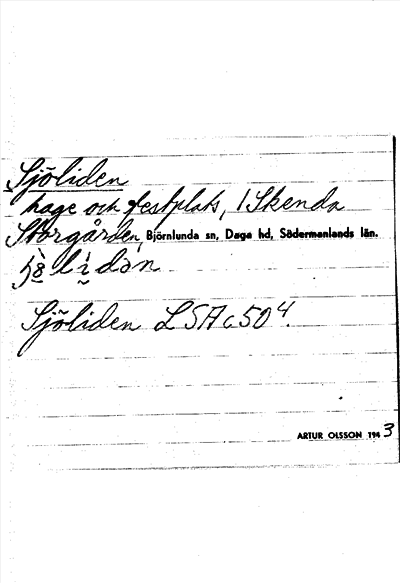 Sjöliden
hage och festplats, 1 Skenda
Storgården, Björnlunda sn, Daga hd, Södermanlands län.
Sjöliden LSA c50⁴.
ARTUR OLSSON 1943